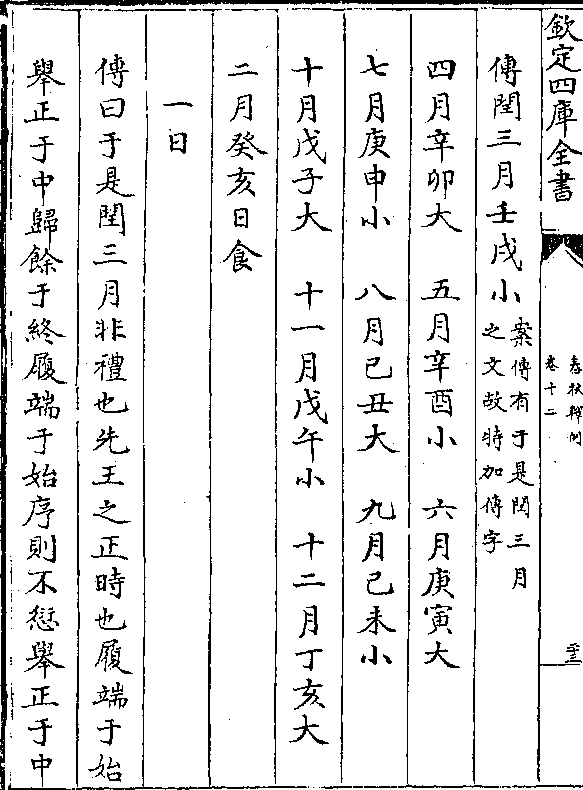 欽定四庫全書
春秋釋例
卷十二
傳閏三月壬戌小
案傳有于是閏三月
之文故特加傳字
四月辛卯大　五月辛酉小　六月庚寅大
七月庚申小　八月己丑大　九月己未小
十月戊子大　十一月戊午小　十二月丁亥大
二月癸亥日食
一日
傳曰于是閏三月非禮也先王之正時也履端于始
舉正于中歸餘于終履端于始序則不愆舉正于中